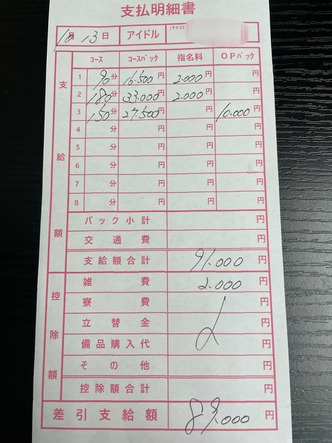 支払明細書
10月 13日 アイドル (キャスト)
コース コースバック 指名料 OPバック
支給額
1 90分 16.500円 2.000円 円
2 180分 33.000円 2.000円 円
3 150分 27.500円 円 10.000円
4 分 円 円 円
5 分 円 円 円
6 分 円 円 円
7 分 円 円 円
8 分 円 円 円
バック小計 円
交通費 円
支給額合計 91.000円
控除額
雑費 2.000円
寮費 円
立替金 円
備品購入代 円
その他 円
控除額合計 円
差引支給額 89.000円